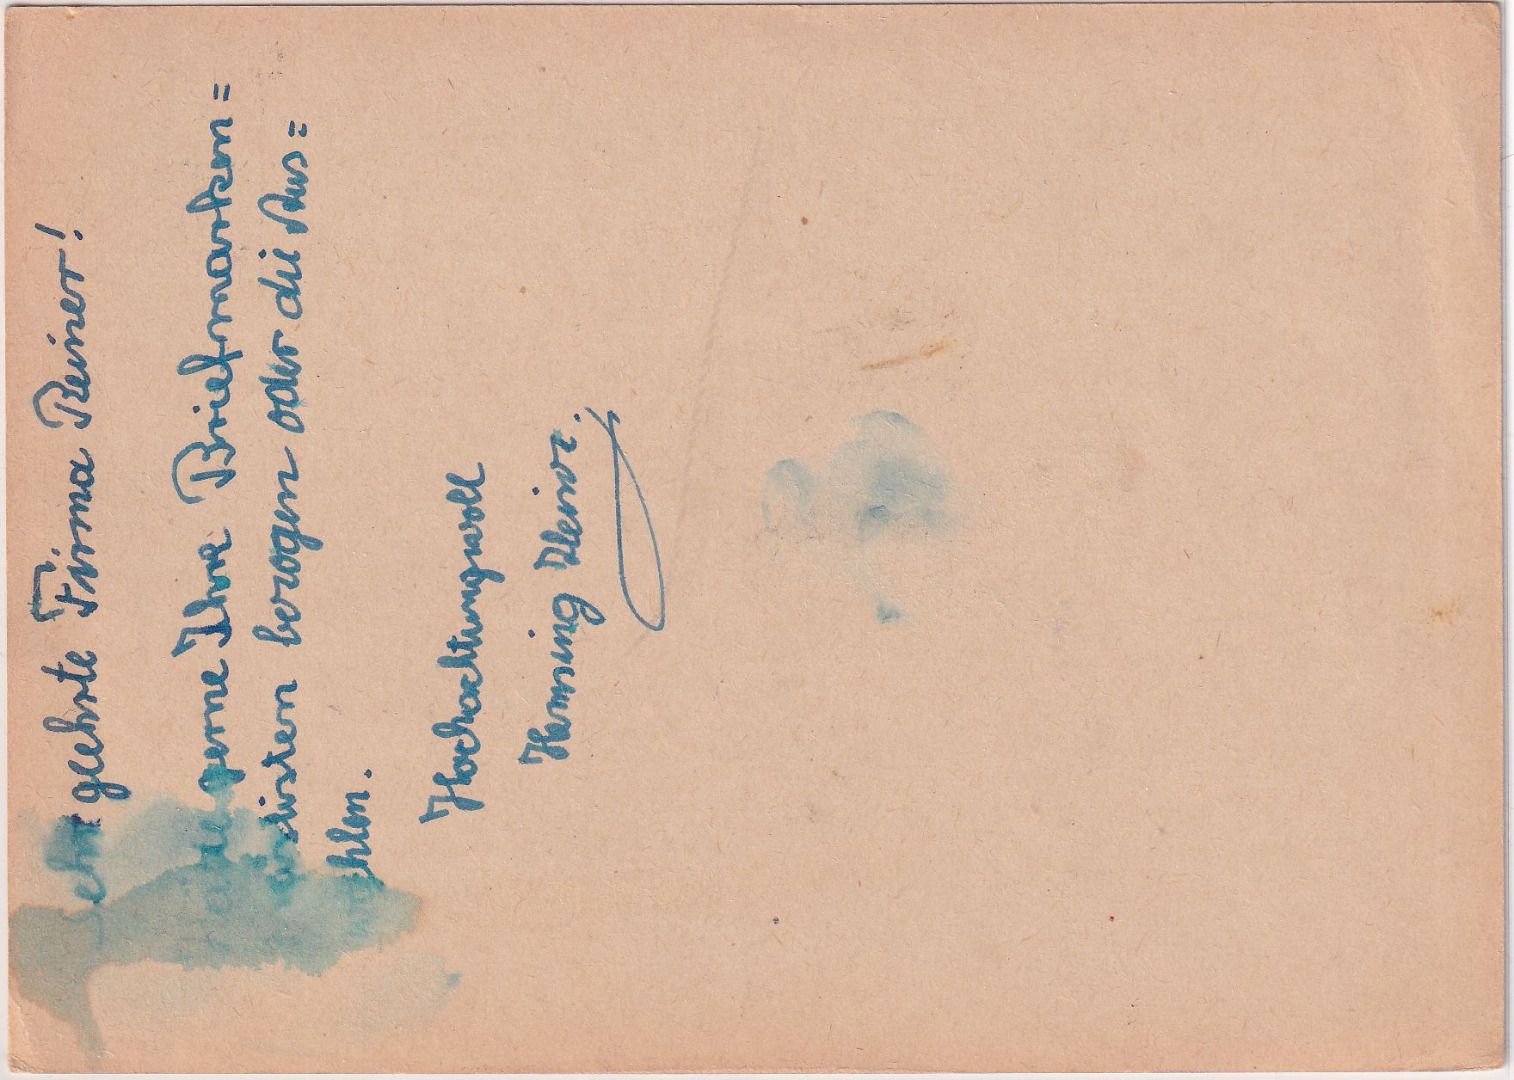 Sehr geehrte Firma Reiner!
gerne Ihre Briefmarken=
listen bezogen oder die Aus=
wahlen.
Hochachtungsvoll
Henning Kleinz.